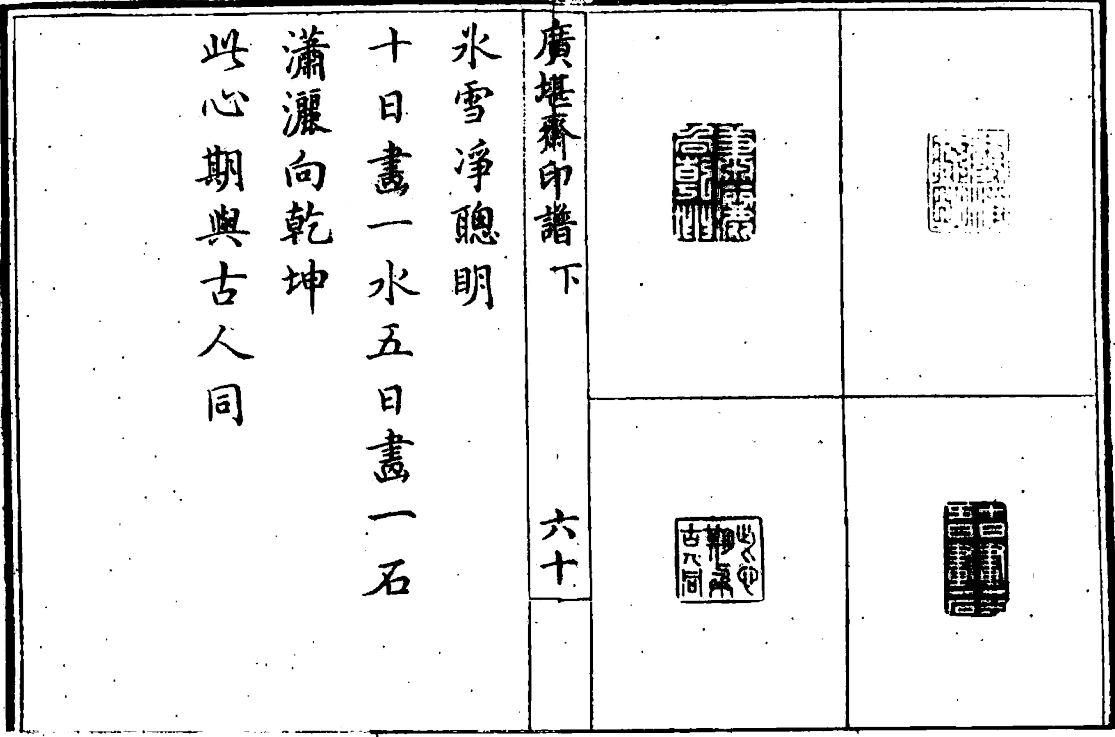 廣堪齋印譜 下
六十
氷雪凈聰明
十日畫一水五日畫一石
瀟灑向乾坤
此心期與古人同
此心
期與
古人同